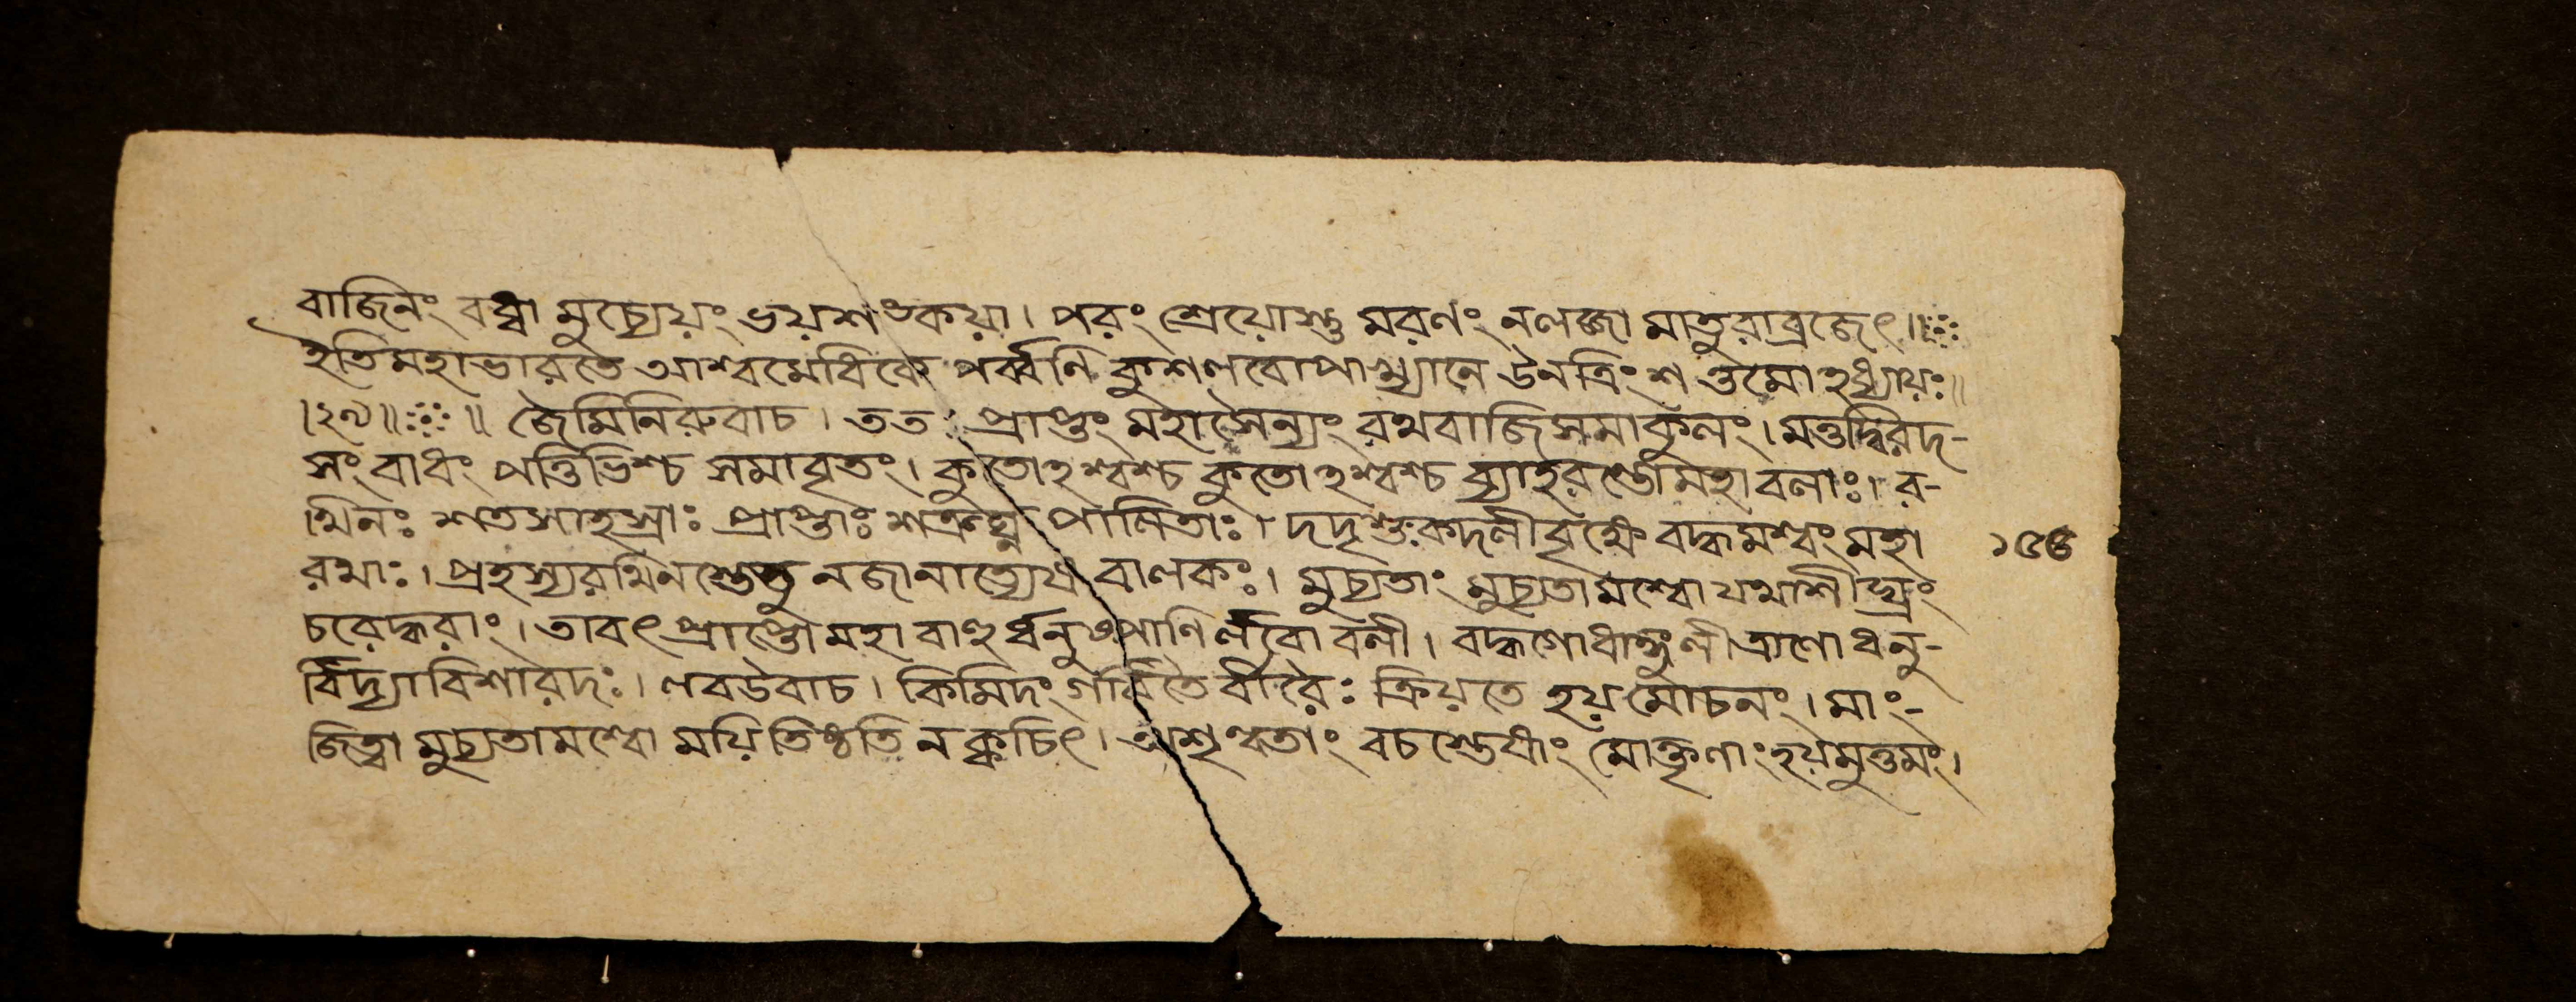 বাজিনং বদ্ধ্বা মুচ্যেয়ং ভয়শঙ্কয়া। পরং শ্রেয়োস্তু মরণং নলজ্জা মাতুরাব্রজেৎ॥
ইতিমহাভারতে আশ্বমেধিকে পর্ব্বণি কুশলবোপাখ্যানে ঊনত্রিংশত্তমোঽধ্যায়ঃ॥
।২৯॥ ॥ জৈমিনিরুবাচ। ততঃ প্রাপ্তং মহাসৈন্যং রথবাজিসমাকুলং। মত্তদ্বিরদ-
সংবাধং পত্তিভিশ্চ সমাবৃতং। কুতোঽশ্বশ্চ কুতোঽশ্বশ্চ ব্যাহরন্তোমহাবলাঃ। র-
থিনঃ শতসাহস্রাঃ প্রাপ্তাঃ শত্রুঘ্নপালিতাঃ। দদৃশুঃকদলীবৃক্ষে বদ্ধমশ্বং মহা
রথাঃ। প্রহস্যরথিনস্তেতু নজানাত্যেষ বালকঃ। মুচ্যতাং মুচ্যতামশ্বো যথাশীঘ্রং
চরেদ্ধরাং। তাবৎপ্রাপ্তোমহাবাহুর্ধনুষ্পাণির্লবো বলী। বদ্ধগোধাঙ্গুলীত্রাণো ধনু-
র্বিদ্যাবিশারদঃ। লবউবাচ। কিমিদং গর্বিতৈর্বীরৈঃ ক্রিয়তে হয়মোচনং। মাং-
জিত্বা মুচ্যতামশ্বো ময়ি তিষ্ঠতি নক্বচিৎ। অশৃণ্বতাং বচস্তেষাং মোক্তৃণাং হয়মুত্তমং।
১৫৪